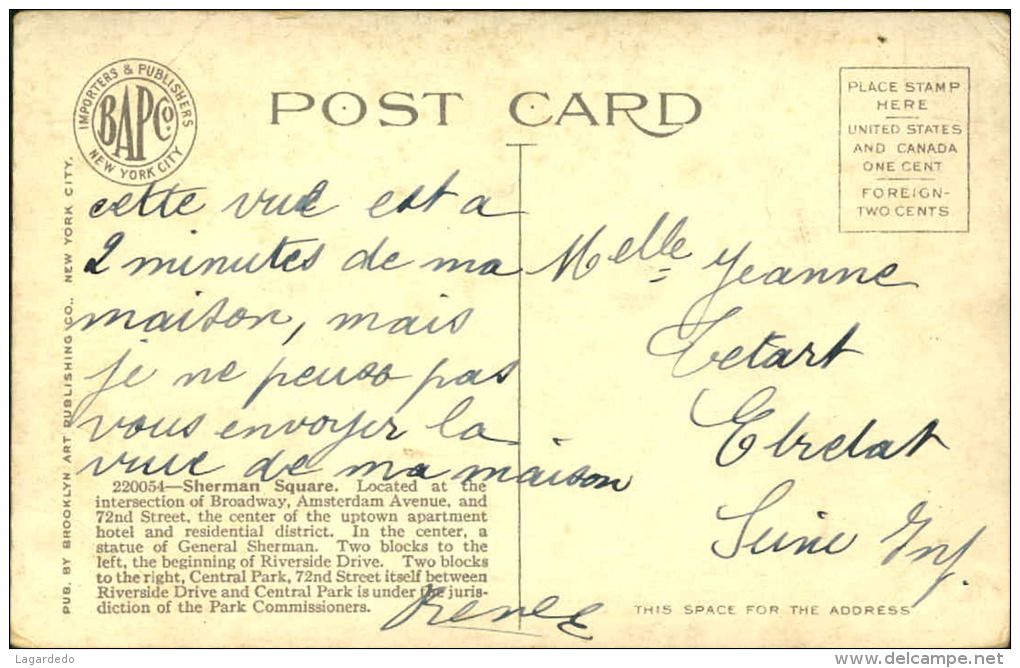 IMPORTERS & PUBLISHERS
BAPCo.
NEW YORK CITY
POST CARD
PLACE STAMP
HERE
UNITED STATES
AND CANADA
ONE CENT
FOREIGN-
TWO CENTS
cette vue est a
2 minutes de ma
maison, mais
je ne peuss pas
vous envoyer la
vue de ma maison
Melle Jeanne
Tetart
Etretat
Seine Inf.
220054—Sherman Square. Located at the
intersection of Broadway, Amsterdam Avenue, and
72nd Street, the center of the uptown apartment
hotel and residential district. In the center, a
statue of General Sherman. Two blocks to the
left, the beginning of Riverside Drive. Two blocks
to the right, Central Park, 72nd Street itself between
Riverside Drive and Central Park is under the juris-
diction of the Park Commissioners.
Renée
THIS SPACE FOR THE ADDRESS
PUB. BY BROOKLYN ART PUBLISHING CO., NEW YORK CITY.
Lagardedo
www.delcampe.net